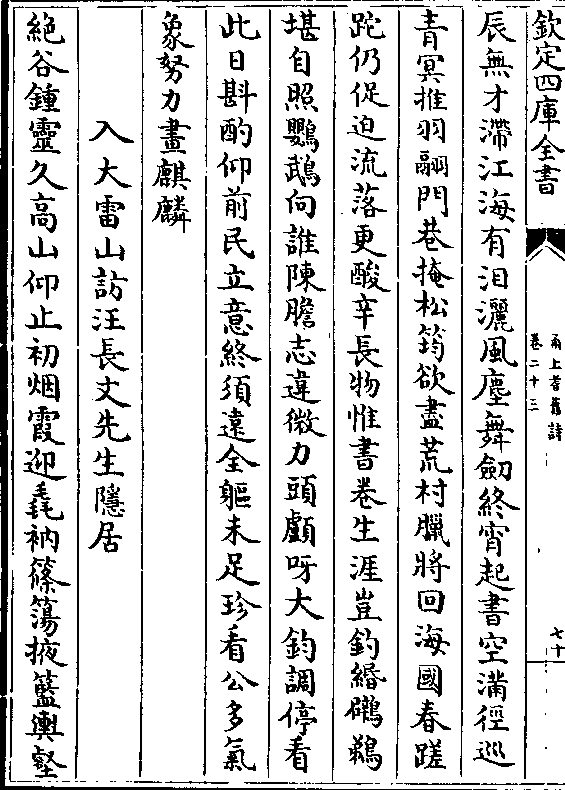 欽定四庫全書
甬上耆舊詩
卷二十三
七十
辰無才滯江海有泪灑風塵舞劒終宵起書空滿徑巡
青冥摧羽翮門巷掩松筠欲盡荒村臘將回海國春蹉
跎仍促迫流落更酸辛長物惟書卷生涯豈釣緡鸊鵜
堪自照鸚鵡向誰陳膽志違微力頭顱呀大鈞調停看
此日斟酌仰前民立意終須遠全軀未足珍看公多氣
象努力畫麒麟
入大雷山訪汪長文先生隱居
絶谷鍾靈久高山仰止初烟霞迎毳衲篠簜掖籃輿壑